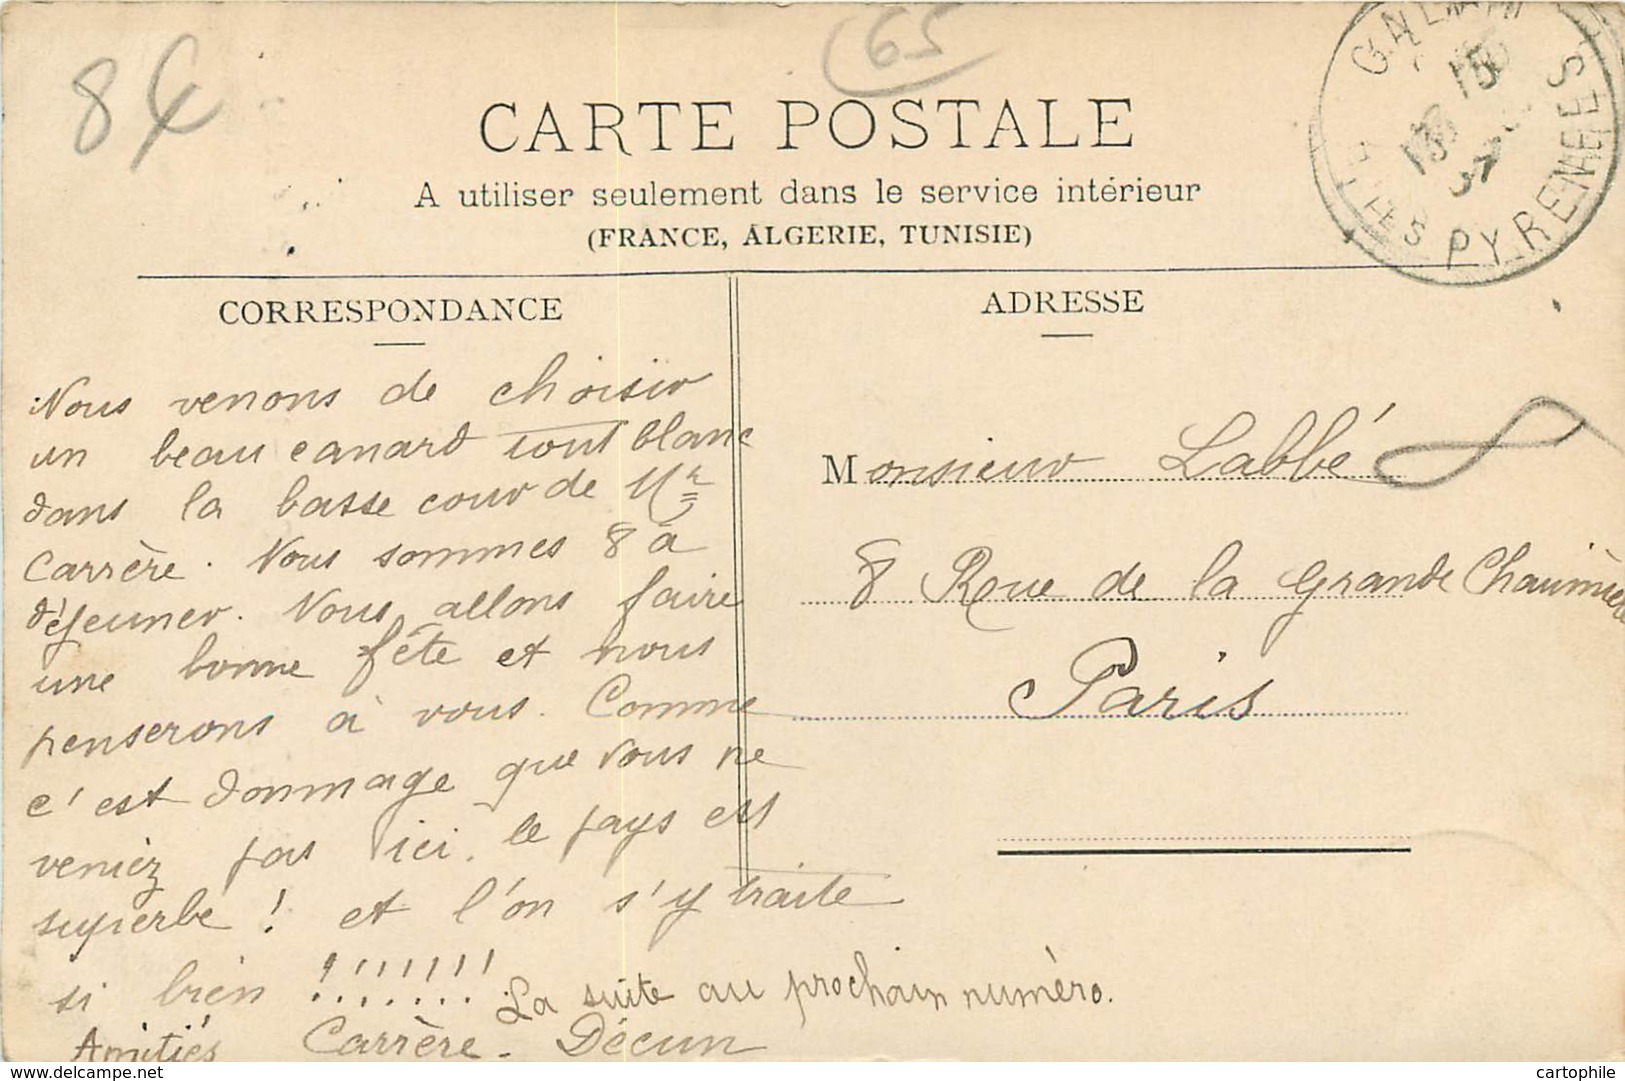 8€
65
CARTE POSTALE
A utiliser seulement dans le service intérieur
(FRANCE, ALGERIE, TUNISIE)
GALAN
15
13
07
HTES PYRENEES
CORRESPONDANCE
ADRESSE
Nous venons de choisir
un beau canard tout blanc
dans la basse cour de Mr
Carrère. Nous sommes 8 à
déjeuner. Nous allons faire
une bonne fête et nous
penserons à vous. Comme
c'est dommage que vous ne
veniez pas ici. le pays est
superbe ! et l'on s'y traite
si bien !!!!!!!
La suite au prochain numéro.
Amitiés Carrère - Décun
Monsieur Labbé
8 Roue de la Grande Chaumière
Paris
delcampe.net
cartophile